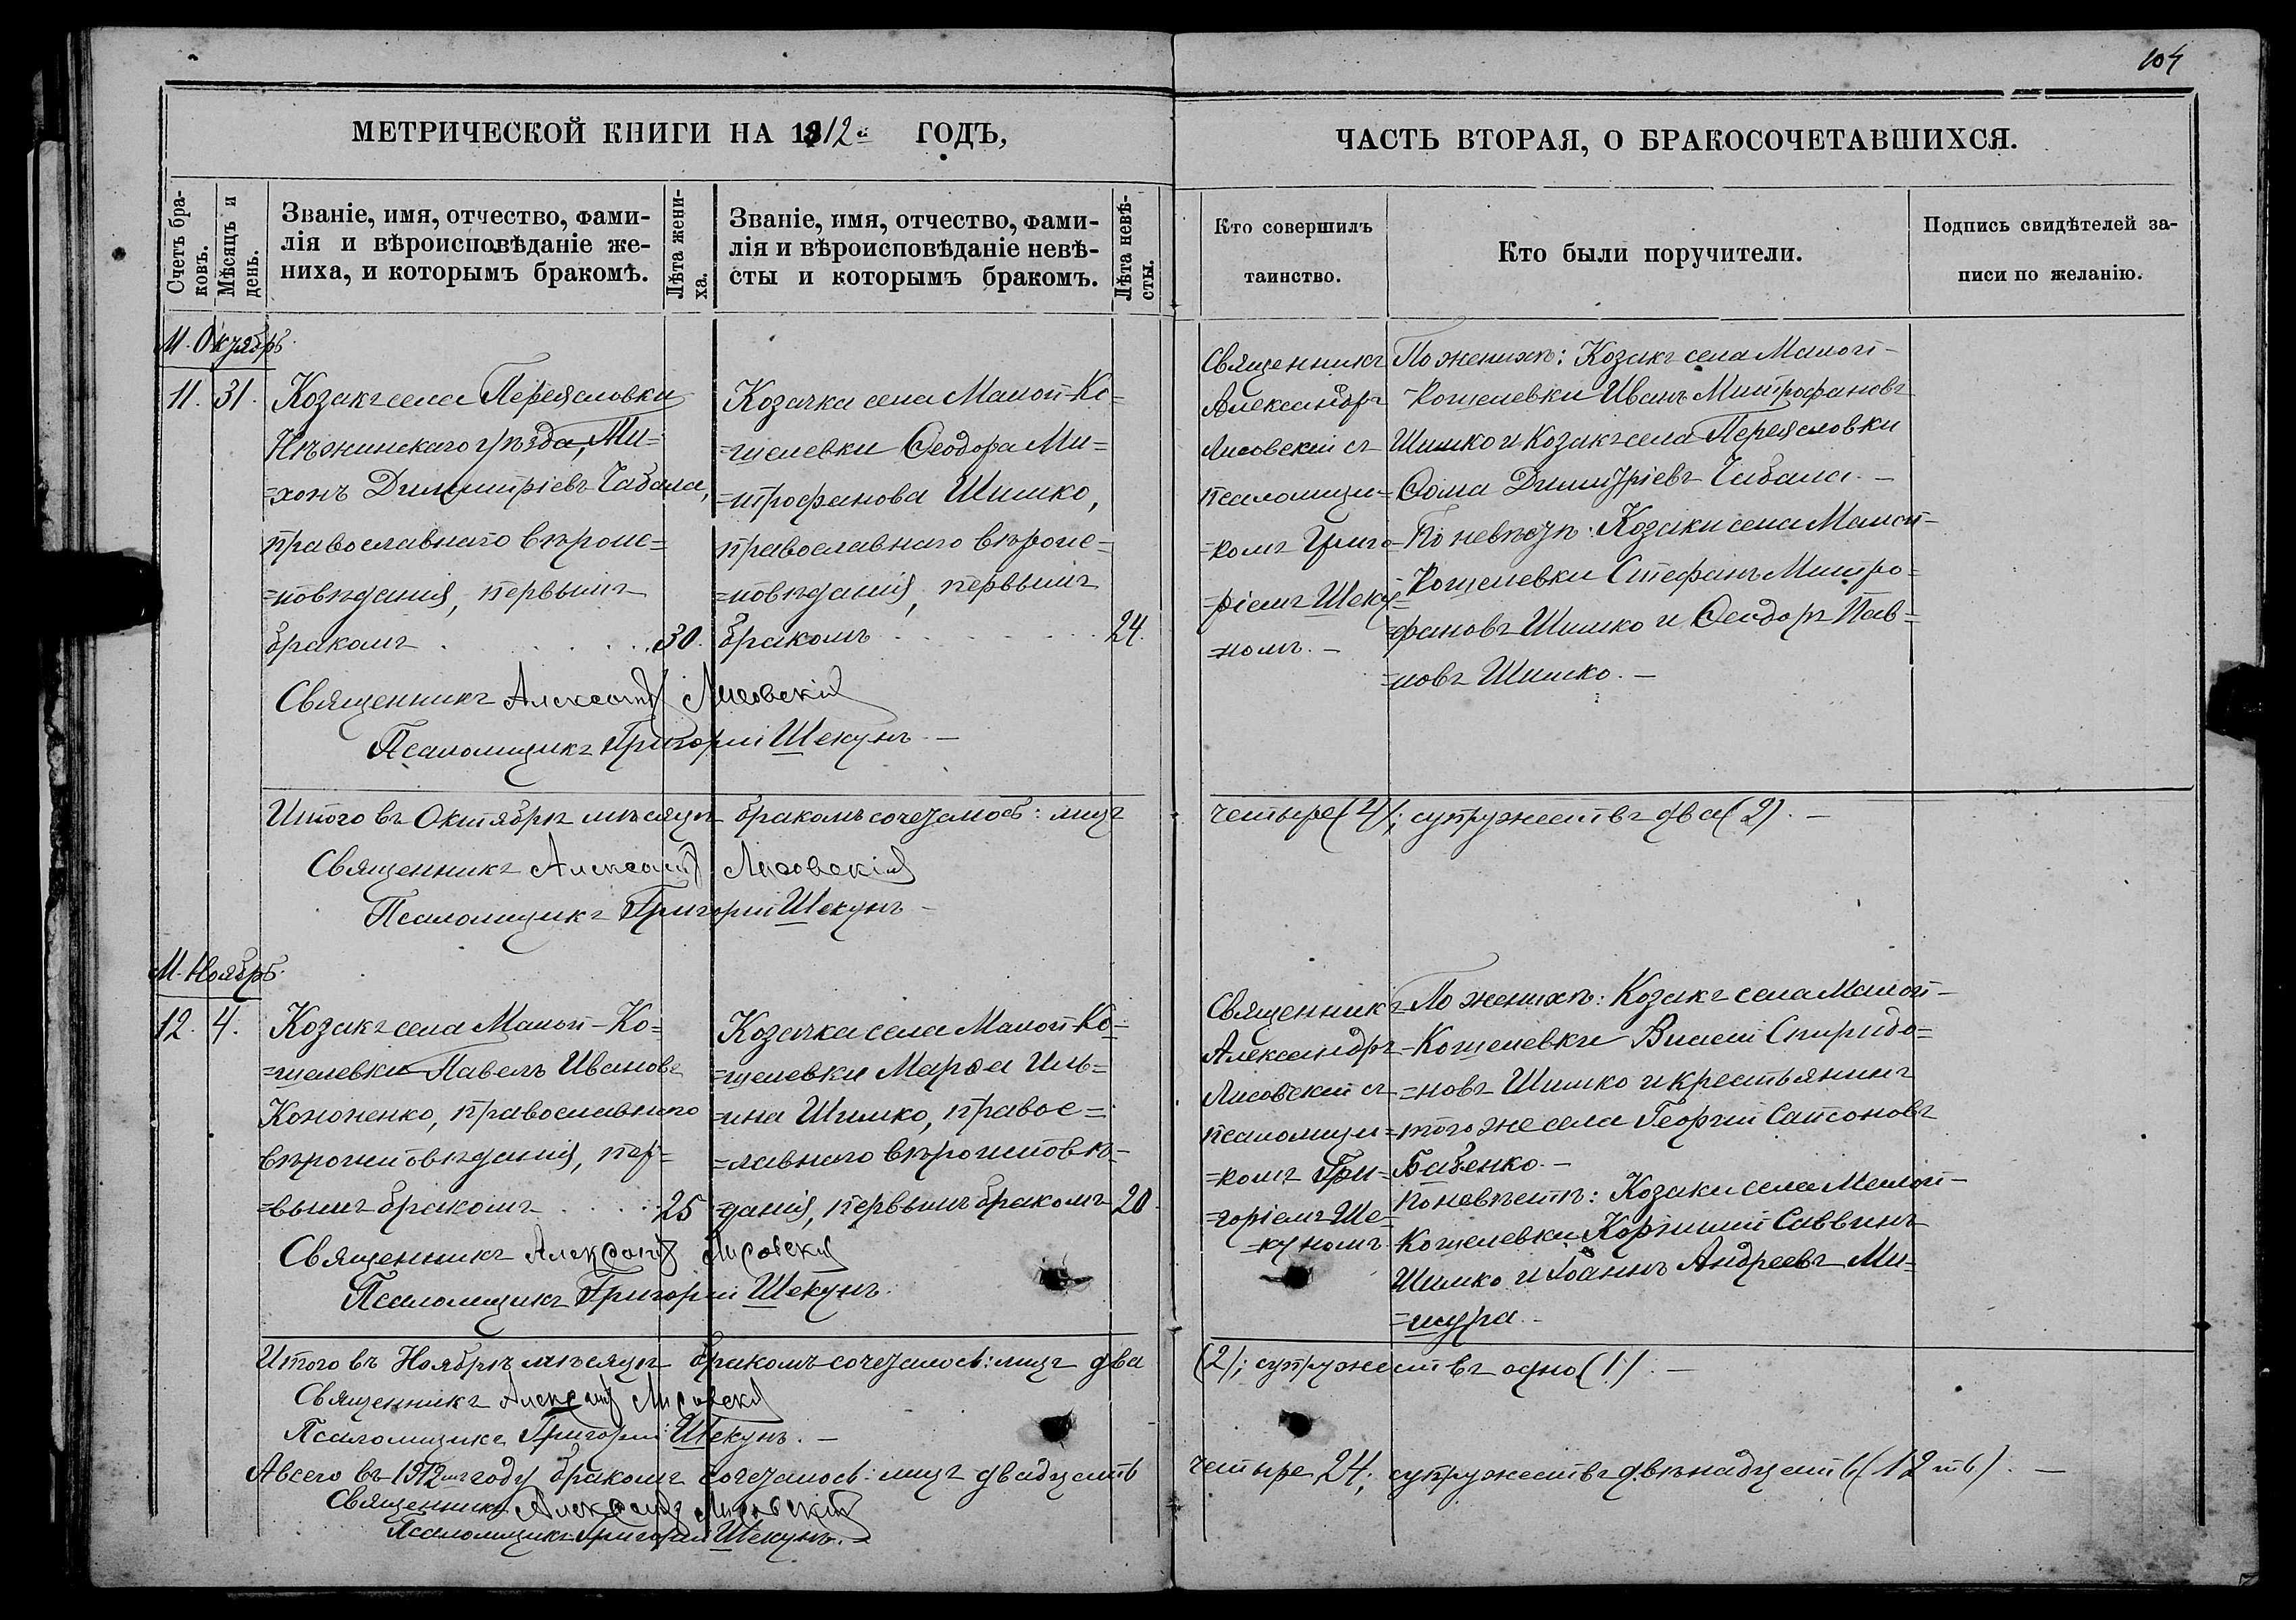 104
МЕТРИЧЕСКОЙ КНИГИ НА 1912й ГОДЪ,
ЧАСТЬ ВТОРАЯ, О БРАКОСОЧЕТАВШИХСЯ.
Счетъ бра-
ковъ.
Мѣсяцъ и
день.
Званіе, имя, отчество, фами-
лія и вѣроисповѣданіе же-
ниха, и которымъ бракомъ.
Лѣта жени-
ха.
Званіе, имя, отчество, фами-
лія и вѣроисповѣданіе невѣ-
сты и которымъ бракомъ.
Лѣта невѣ-
сты.
Кто совершилъ
таинство.
Кто были поручители.
Подпись свидѣтелей за-
писи по желанію.
М. Октябрь.
11. 31.
Козакъ села Переясловки
Нѣжинскаго уѣзда, Ми-
=хонъ Димитріевъ Чабана,
православнаго вѣроис=
=повѣданія, первымъ
бракомъ 30.
Козачка села Малой-Ко=
=шелевки Ѳеодора Ми=
=трофанова Шишко,
православнаго вѣроис=
=повѣданія, первымъ
бракомъ 24.
Священникъ
Александръ
Лисовскій съ
псаломщи=
=комъ Григо=
=ріемъ Шеку=
=номъ. —
По женихѣ: Козакъ села Малой-
-Кошелевки Иванъ Митрофановъ
Шишко и Козакъ села Переясловки
Ѳома Димитріевъ Чабана. —
По невѣстѣ: Козаки села Малой-
-Кошелевки Стефанъ Митро=
=фановъ Шишко и Ѳеодоръ Пав=
=ловъ Шишко. —
Священникъ Александръ Лисовскій
Псаломщикъ Григорій Шекунъ. —
Итого въ Октябрѣ мѣсяцѣ бракомъ сочеталось: лицъ четыре (4); супружествъ два (2). —
Священникъ Александръ Лисовскій
Псаломщикъ Григорій Шекунъ —
М. Ноябрь.
12. 4.
Козакъ села Малой-Ко=
=шелевки Павелъ Ивановъ
Кононенко, православнаго
вѣроисповѣданія, пер=
=вымъ бракомъ 25
Козачка села Малой-Ко=
=шелевки Марѳа Иль=
=ина Шишко, правос=
=лавнаго вѣроисповѣ=
=данія, первымъ бракомъ 20.
Священникъ
Александръ
Лисовскій съ
псаломщи=
=комъ Гри=
=горіемъ Ше=
=куномъ.
По женихѣ: Козакъ села Малой-
-Кошелевки Власій Спиридо=
=новъ Шишко и крестьянинъ
того же села Георгій Сапсоновъ
Бабенко. —
По невѣстѣ: Козаки села Малой-
Кошелевки Корнилій Саввинъ
Шишко и Іоаннъ Андреевъ Ми-
=щура. -
Священникъ Александръ Лисовскій
Псаломщикъ Григорій Шекунъ.
Итого въ Ноябрѣ мѣсяцѣ бракомъ сочеталось: лицъ два (2); супружествъ одно (1). —
Священникъ Александръ Лисовскій
Псаломщикъ Григорій Шекунъ. —
А всего въ 1912мъ году бракомъ сочеталось: лицъ двадцать четыре 24; супружествъ двѣнадцать (12ть). —
Священникъ Александръ Лисовскій
Псаломщикъ Григорій Шекунъ. —